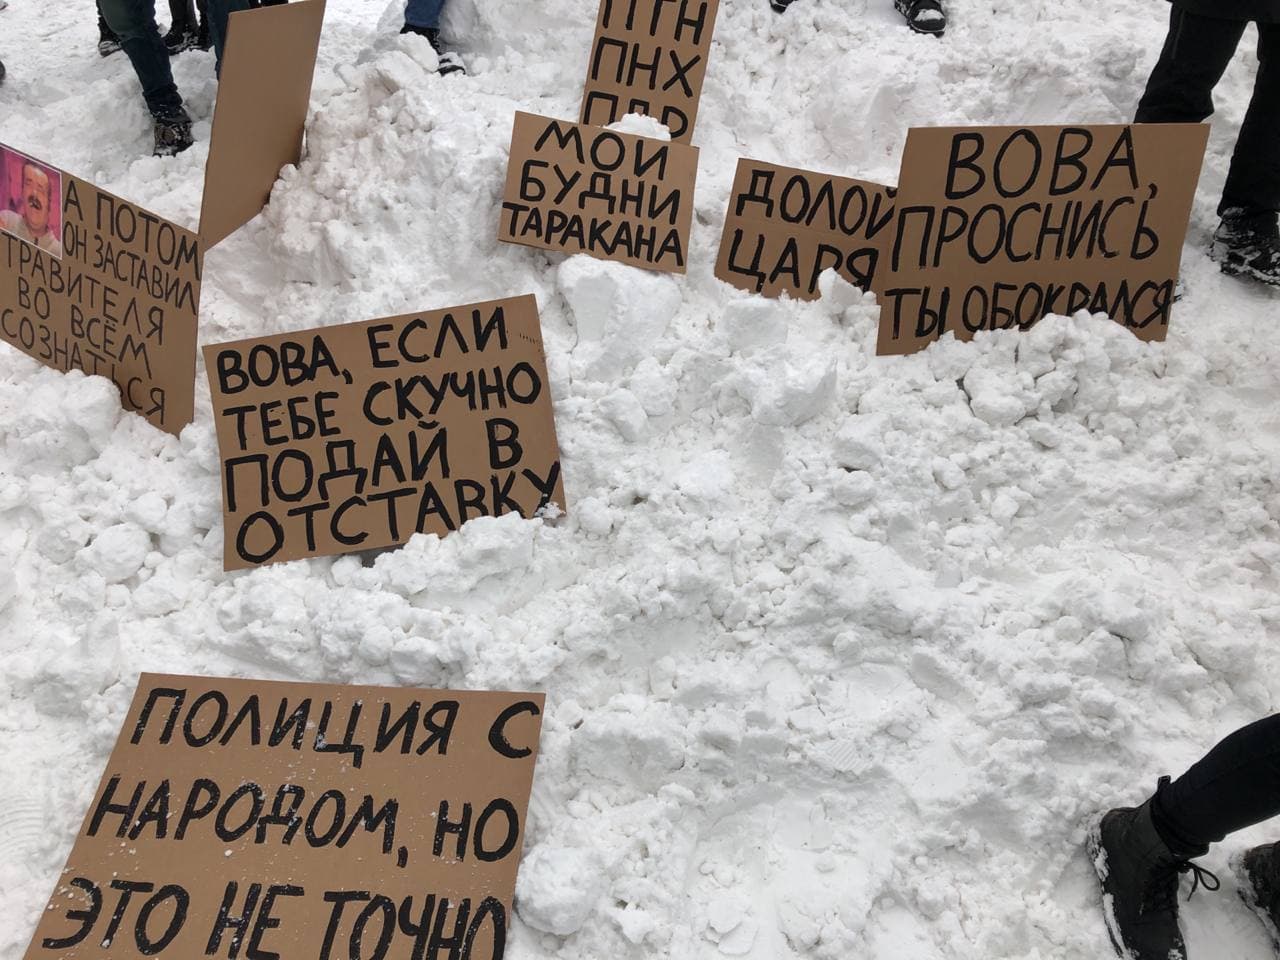 ПГН
ПНХ
МОИ
БУДНИ
ТАРАКАНА
ДОЛОЙ
ЦАРЯ
ВОВА,
ПРОСНИСЬ
ТЫ ОБОКРАЛСЯ
А ПОТОМ
ОН ЗАСТАВИЛ
ТРАВИТЕЛЯ
ВО ВСЁМ
СОЗНАТЬСЯ
ВОВА, ЕСЛИ
ТЕБЕ СКУЧНО
ПОДАЙ В
ОТСТАВКУ
ПОЛИЦИЯ С
НАРОДОМ, НО
ЭТО НЕ ТОЧНО